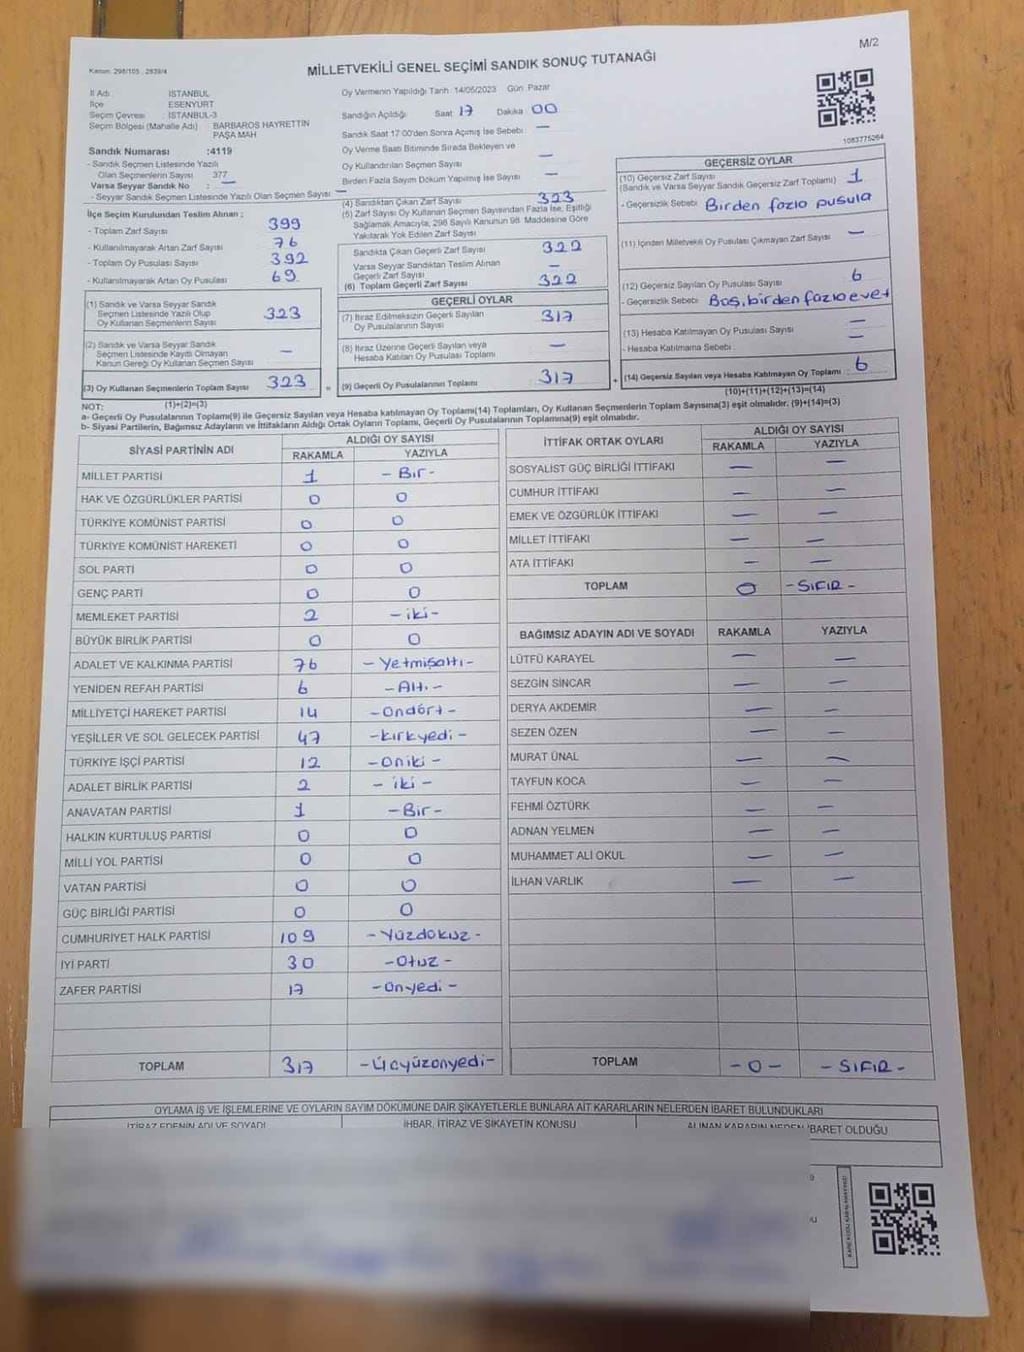 M/2
Kanun: 298/105 , 2839/4
MİLLETVEKİLİ GENEL SEÇİMİ SANDIK SONUÇ TUTANAĞI
İl Adı : İSTANBUL
İlçe : ESENYURT
Seçim Çevresi : İSTANBUL-3
Seçim Bölgesi (Mahalle Adı) : BARBAROS HAYRETTİN PAŞA MAH
Sandık Numarası :4119
- Sandık Seçmen Listesinde Yazılı
Olan Seçmenlerin Sayısı 377
Varsa Seyyar Sandık No : —
- Seyyar Sandık Seçmen Listesinde Yazılı Olan Seçmen Sayısı: —
İlçe Seçim Kurulundan Teslim Alınan ;
- Toplam Zarf Sayısı 399
- Kullanılmayarak Artan Zarf Sayısı 76
- Toplam Oy Pusulası Sayısı 392
- Kullanılmayarak Artan Oy Pusulası 69
(1) Sandık ve Varsa Seyyar Sandık
Seçmen Listesinde Yazılı Olup
Oy Kullanan Seçmenlerin Sayısı 323
(2) Sandık ve Varsa Seyyar Sandık
Seçmen Listesinde Kayıtlı Olmayan
Kanun Gereği Oy Kullanan Seçmen Sayısı —
(3) Oy Kullanan Seçmenlerin Toplam Sayısı 323
(1)+(2)=(3)
Oy Vermenin Yapıldığı Tarih :14/05/2023 Gün :Pazar
Sandığın Açıldığı Saat 17 Dakika 00
Sandık Saat 17:00'den Sonra Açmış İse Sebebi —
Oy Verme Saati Bitiminde Sırada Bekleyen ve
Oy Kullandırılan Seçmen Sayısı —
Birden Fazla Sayım Döküm Yapılmış İse Sayısı —
(4) Sandıktan Çıkan Zarf Sayısı 323
(5) Zarf Sayısı Oy Kullanan Seçmen Sayısından Fazla İse, Eşitliği
Sağlamak Amacıyla, 298 Sayılı Kanunun 98. Maddesine Göre
Yakılarak Yok Edilen Zarf Sayısı
Sandıkta Çıkan Geçerli Zarf Sayısı 322
Varsa Seyyar Sandıktan Teslim Alınan
Geçerli Zarf Sayısı —
(6) Toplam Geçerli Zarf Sayısı 322
GEÇERLİ OYLAR
(7) İtiraz Edilmeksizin Geçerli Sayılan
Oy Pusulasının Sayısı 317
(8) İtiraz Üzerine Geçerli Sayılan veya
Hesaba Katılan Oy Pusulası Toplamı —
= (9) Geçerli Oy Pusulalarının Toplamı 317
1083775264
GEÇERSİZ OYLAR
(10) Geçersiz Zarf Sayısı 1
(Sandık ve Varsa Seyyar Sandık Geçersiz Zarf Toplamı)
- Geçersizlik Sebebi Birden fazla pusula
(11) İçinden Milletvekili Oy Pusulası Çıkmayan Zarf Sayısı —
(12) Geçersiz Sayılan Oy Pusulası Sayısı 6
- Geçersizlik Sebebi Boş, birden fazla evet
(13) Hesaba Katılmayan Oy Pusulası Sayısı —
- Hesaba Katılmama Sebebi : —
+ (14) Geçersiz Sayılan veya Hesaba Katılmayan Oy Toplamı : 6
(10)+(11)+(12)+(13)=(14)
NOT:
a- Geçerli Oy Pusulalarının Toplamı(9) ile Geçersiz Sayılan veya Hesaba katılmayan Oy Toplamı(14) Toplamları, Oy Kullanan Seçmenlerin Toplam Sayısına(3) eşit olmalıdır. (9)+(14)=(3)
b- Siyasi Partilerin, Bağımsız Adayların ve İttifakların Aldığı Ortak Oyların Toplamı, Geçerli Oy Pusulalarının Toplamına(9) eşit olmalıdır.
SİYASİ PARTİNİN ADI ALDIĞI OY SAYISI
RAKAMLA YAZIYLA
MİLLET PARTİSİ 1 -Bir-
HAK VE ÖZGÜRLÜKLER PARTİSİ 0 0
TÜRKİYE KOMÜNİST PARTİSİ 0 0
TÜRKİYE KOMÜNİST HAREKETİ 0 0
SOL PARTİ 0 0
GENÇ PARTİ 0 0
MEMLEKET PARTİSİ 2 -iki-
BÜYÜK BİRLİK PARTİSİ 0 0
ADALET VE KALKINMA PARTİSİ 76 -Yetmişaltı-
YENİDEN REFAH PARTİSİ 6 -Altı-
MİLLİYETÇİ HAREKET PARTİSİ 14 -Ondört-
YEŞİLLER VE SOL GELECEK PARTİSİ 47 -kırkyedi-
TÜRKİYE İŞÇİ PARTİSİ 12 -oniki-
ADALET BİRLİK PARTİSİ 2 -iki-
ANAVATAN PARTİSİ 1 -Bir-
HALKIN KURTULUŞ PARTİSİ 0 0
MİLLİ YOL PARTİSİ 0 0
VATAN PARTİSİ 0 0
GÜÇ BİRLİĞİ PARTİSİ 0 0
CUMHURİYET HALK PARTİSİ 109 -Yüzdokuz-
İYİ PARTİ 30 -Otuz-
ZAFER PARTİSİ 17 -Onyedi-
TOPLAM 317 -Üçyüzonyedi-
İTTİFAK ORTAK OYLARI ALDIĞI OY SAYISI
RAKAMLA YAZIYLA
SOSYALİST GÜÇ BİRLİĞİ İTTİFAKI — —
CUMHUR İTTİFAKI — —
EMEK VE ÖZGÜRLÜK İTTİFAKI — —
MİLLET İTTİFAKI — —
ATA İTTİFAKI — —
TOPLAM 0 -SIFIR-
BAĞIMSIZ ADAYIN ADI VE SOYADI RAKAMLA YAZIYLA
LÜTFÜ KARAYEL — —
SEZGİN SİNCAR — —
DERYA AKDEMİR — —
SEZEN ÖZEN — —
MURAT ÜNAL — —
TAYFUN KOCA — —
FEHMİ ÖZTÜRK — —
ADNAN YELMEN — —
MUHAMMET ALİ OKUL — —
İLHAN VARLIK — —
TOPLAM -0- -SIFIR-
OYLAMA İŞ VE İŞLEMLERİNE VE OYLARIN SAYIM DÖKÜMÜNE DAİR ŞİKAYETLERLE BUNLARA AİT KARARLARIN NELERDEN İBARET BULUNDUKLARI
İTİRAZ EDENİN ADI VE SOYADI İHBAR, İTİRAZ VE ŞİKAYETİN KONUSU ALINAN KARARIN NEDEN İBARET OLDUĞU